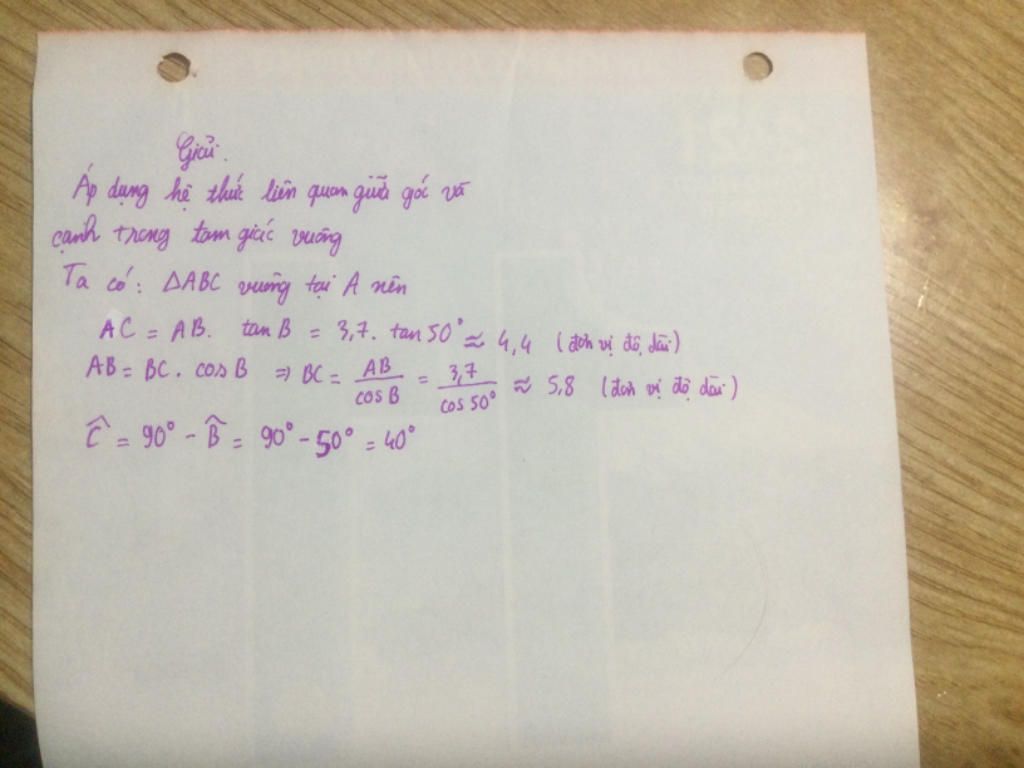 Giải.
Áp dụng hệ thức liên quan giữa góc và
cạnh trong tam giác vuông
Ta có: ΔABC vuông tại A nên
AC = AB. tan B = 3,7. tan 50° ≈ 4,4 (đơn vị độ dài)
AB = BC. cos B ⇒ BC = AB/cos B = 3,7/cos 50° ≈ 5,8 (đơn vị độ dài)
Ĉ = 90° - B̂ = 90° - 50° = 40°